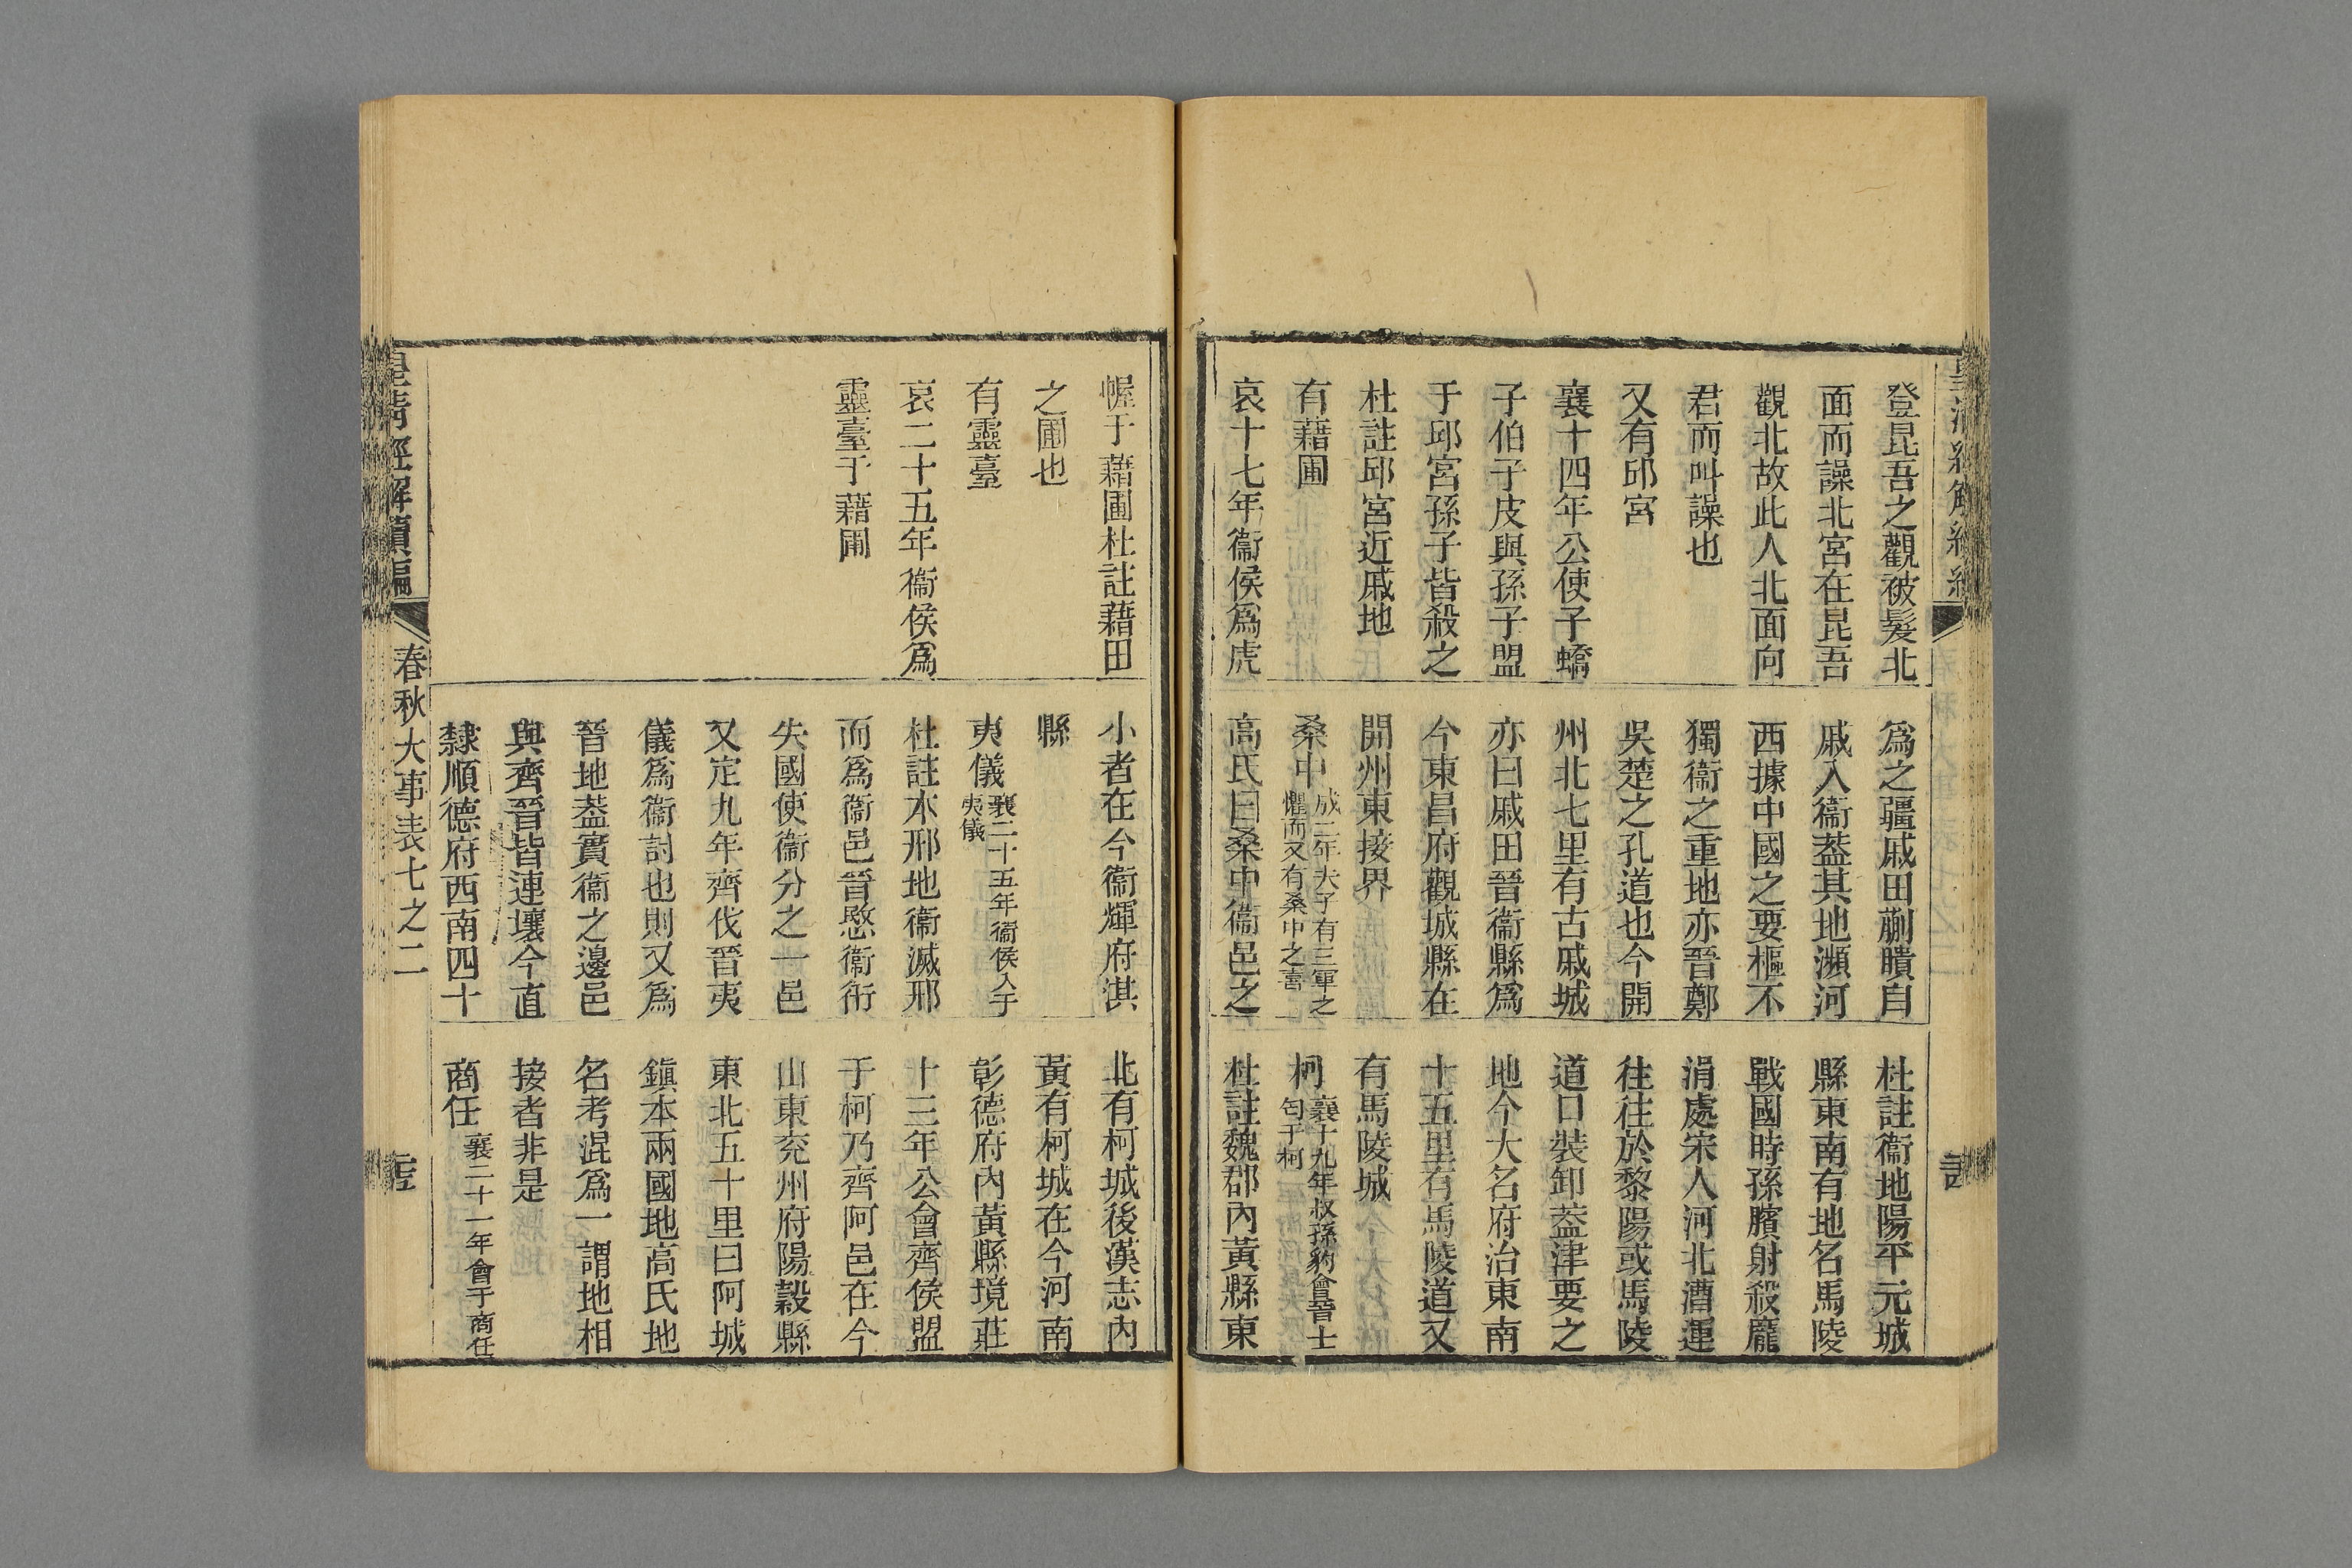 登昆吾之觀被髮北
面而譟北宮在昆吾
觀北故此人北面向
君而叫譟也
又有邱宮
襄十四年公使子蟜
子伯子皮與孫子盟
于邱宮孫子皆殺之
杜註邱宮近戚地
有藉圃
哀十七年衞侯爲虎
爲之疆戚田蒯聵自
戚入衞葢其地瀕河
西據中國之要樞不
獨衞之重地亦晉鄭
吳楚之孔道也今開
州北七里有古戚城
亦曰戚田晉衞縣爲
今東昌府觀城縣在
開州東接界
桑中成二年夫子有三軍之
懼而又有桑中之喜
高氏曰桑中衞邑之
杜註衞地陽平元城
縣東南有地名馬陵
戰國時孫臏射殺龐
涓處宋人河北漕運
往往於黎陽或馬陵
道口裝卸葢津要之
地今大名府治東南
十五里有馬陵道又
有馬陵城
柯襄十九年叔孫豹會晉士
匄于柯
杜註魏郡內黃縣東
幄于藉圃杜註藉田
之圃也
有靈臺
哀二十五年衞侯爲
靈臺于藉圃
小者在今衞輝府淇
縣
夷儀襄二十五年衞侯入于
夷儀
杜註本邢地衞滅邢
而爲衞邑晉愍衞衎
失國使衞分之一邑
又定九年齊伐晉夷
儀爲衞討也則又爲
晉地葢實衞之邊邑
與齊晉皆連壤今直
隸順德府西南四十
北有柯城後漢志內
黃有柯城在今河南
彰德府內黃縣境莊
十三年公會齊侯盟
于柯乃齊阿邑在今
山東兖州府陽穀縣
東北五十里曰阿城
鎮本兩國地高氏地
名考混爲一謂地相
接者非是
商任襄二十一年會于商任
皇清經解續編
春秋大事表七之二